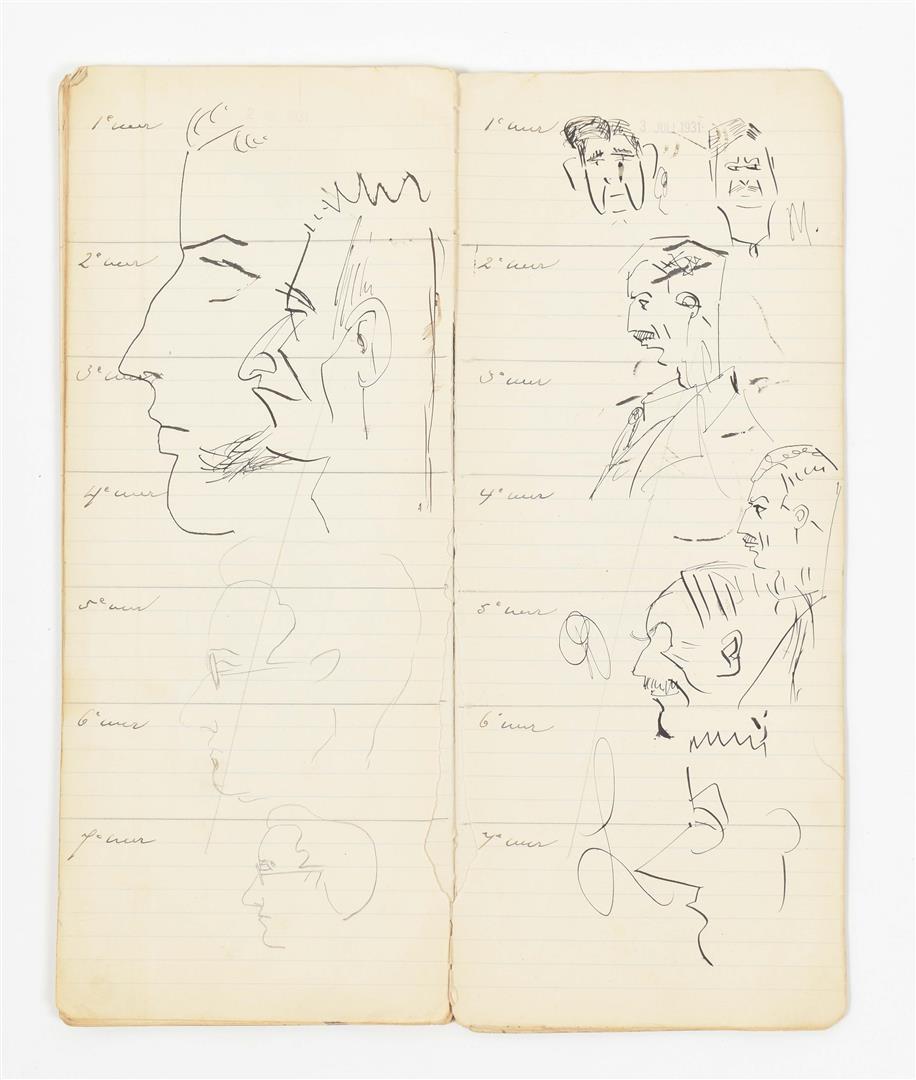 1e uur
2e uur
3e uur
4e uur
5e uur
6e uur
7e uur
3 JULI 1931
1e uur
M.
2e uur
3e uur
4e uur
5e uur
6e uur
7e uur